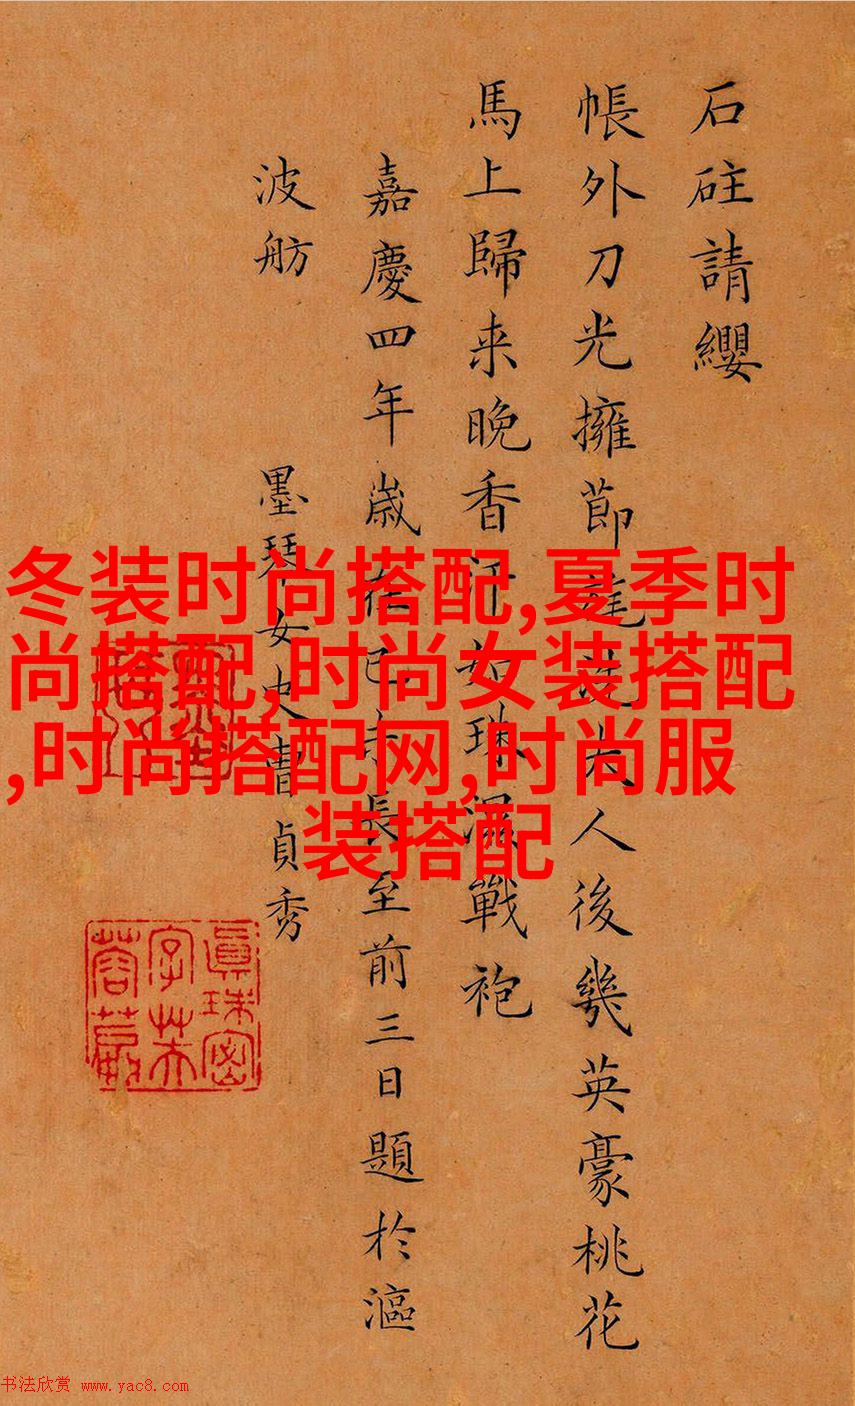 石砫請纓
帳外刀光擁節人後幾英豪桃花
馬上歸来晚香汗如珠濕戰袍
嘉慶四年歲在己未長至前三日題於漚
波舫 墨琴女史曹貞秀
眞珠密
字芙
蓉
冬装时尚搭配,夏季时
尚搭配,时尚女装搭配
,时尚搭配网,时尚服
装搭配
书法欣赏 www.yac8.com